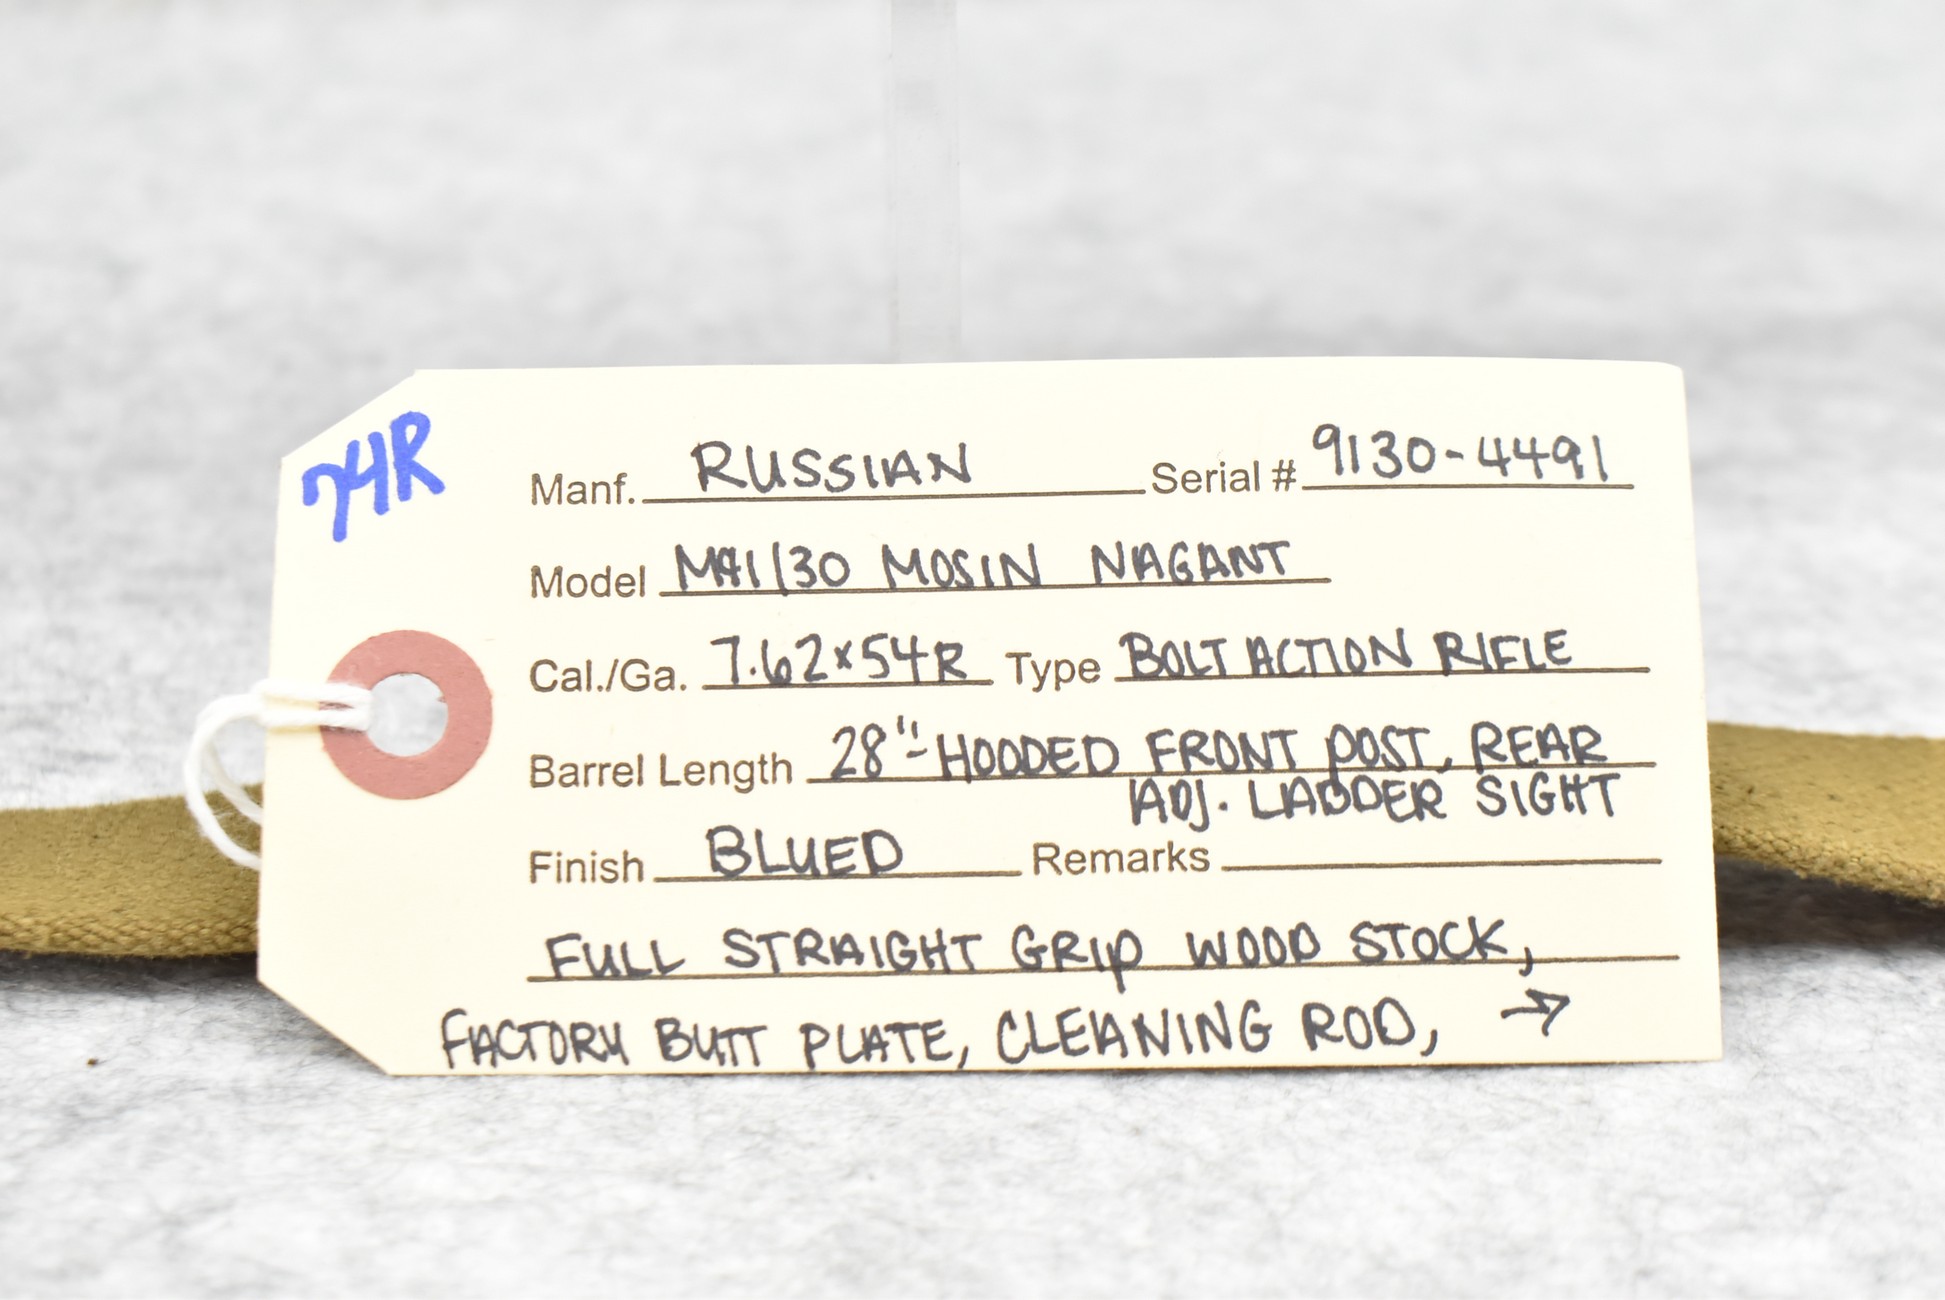 74R
Manf. RUSSIAN Serial # 9130-4491
Model M91/30 MOSIN NAGANT
Cal./Ga. 7.62x54R Type BOLT ACTION RIFLE
Barrel Length 28"-HOODED FRONT POST, REAR
ADJ. LADDER SIGHT
Finish BLUED Remarks
FULL STRAIGHT GRIP WOOD STOCK,
FACTORY BUTT PLATE, CLEANING ROD, →